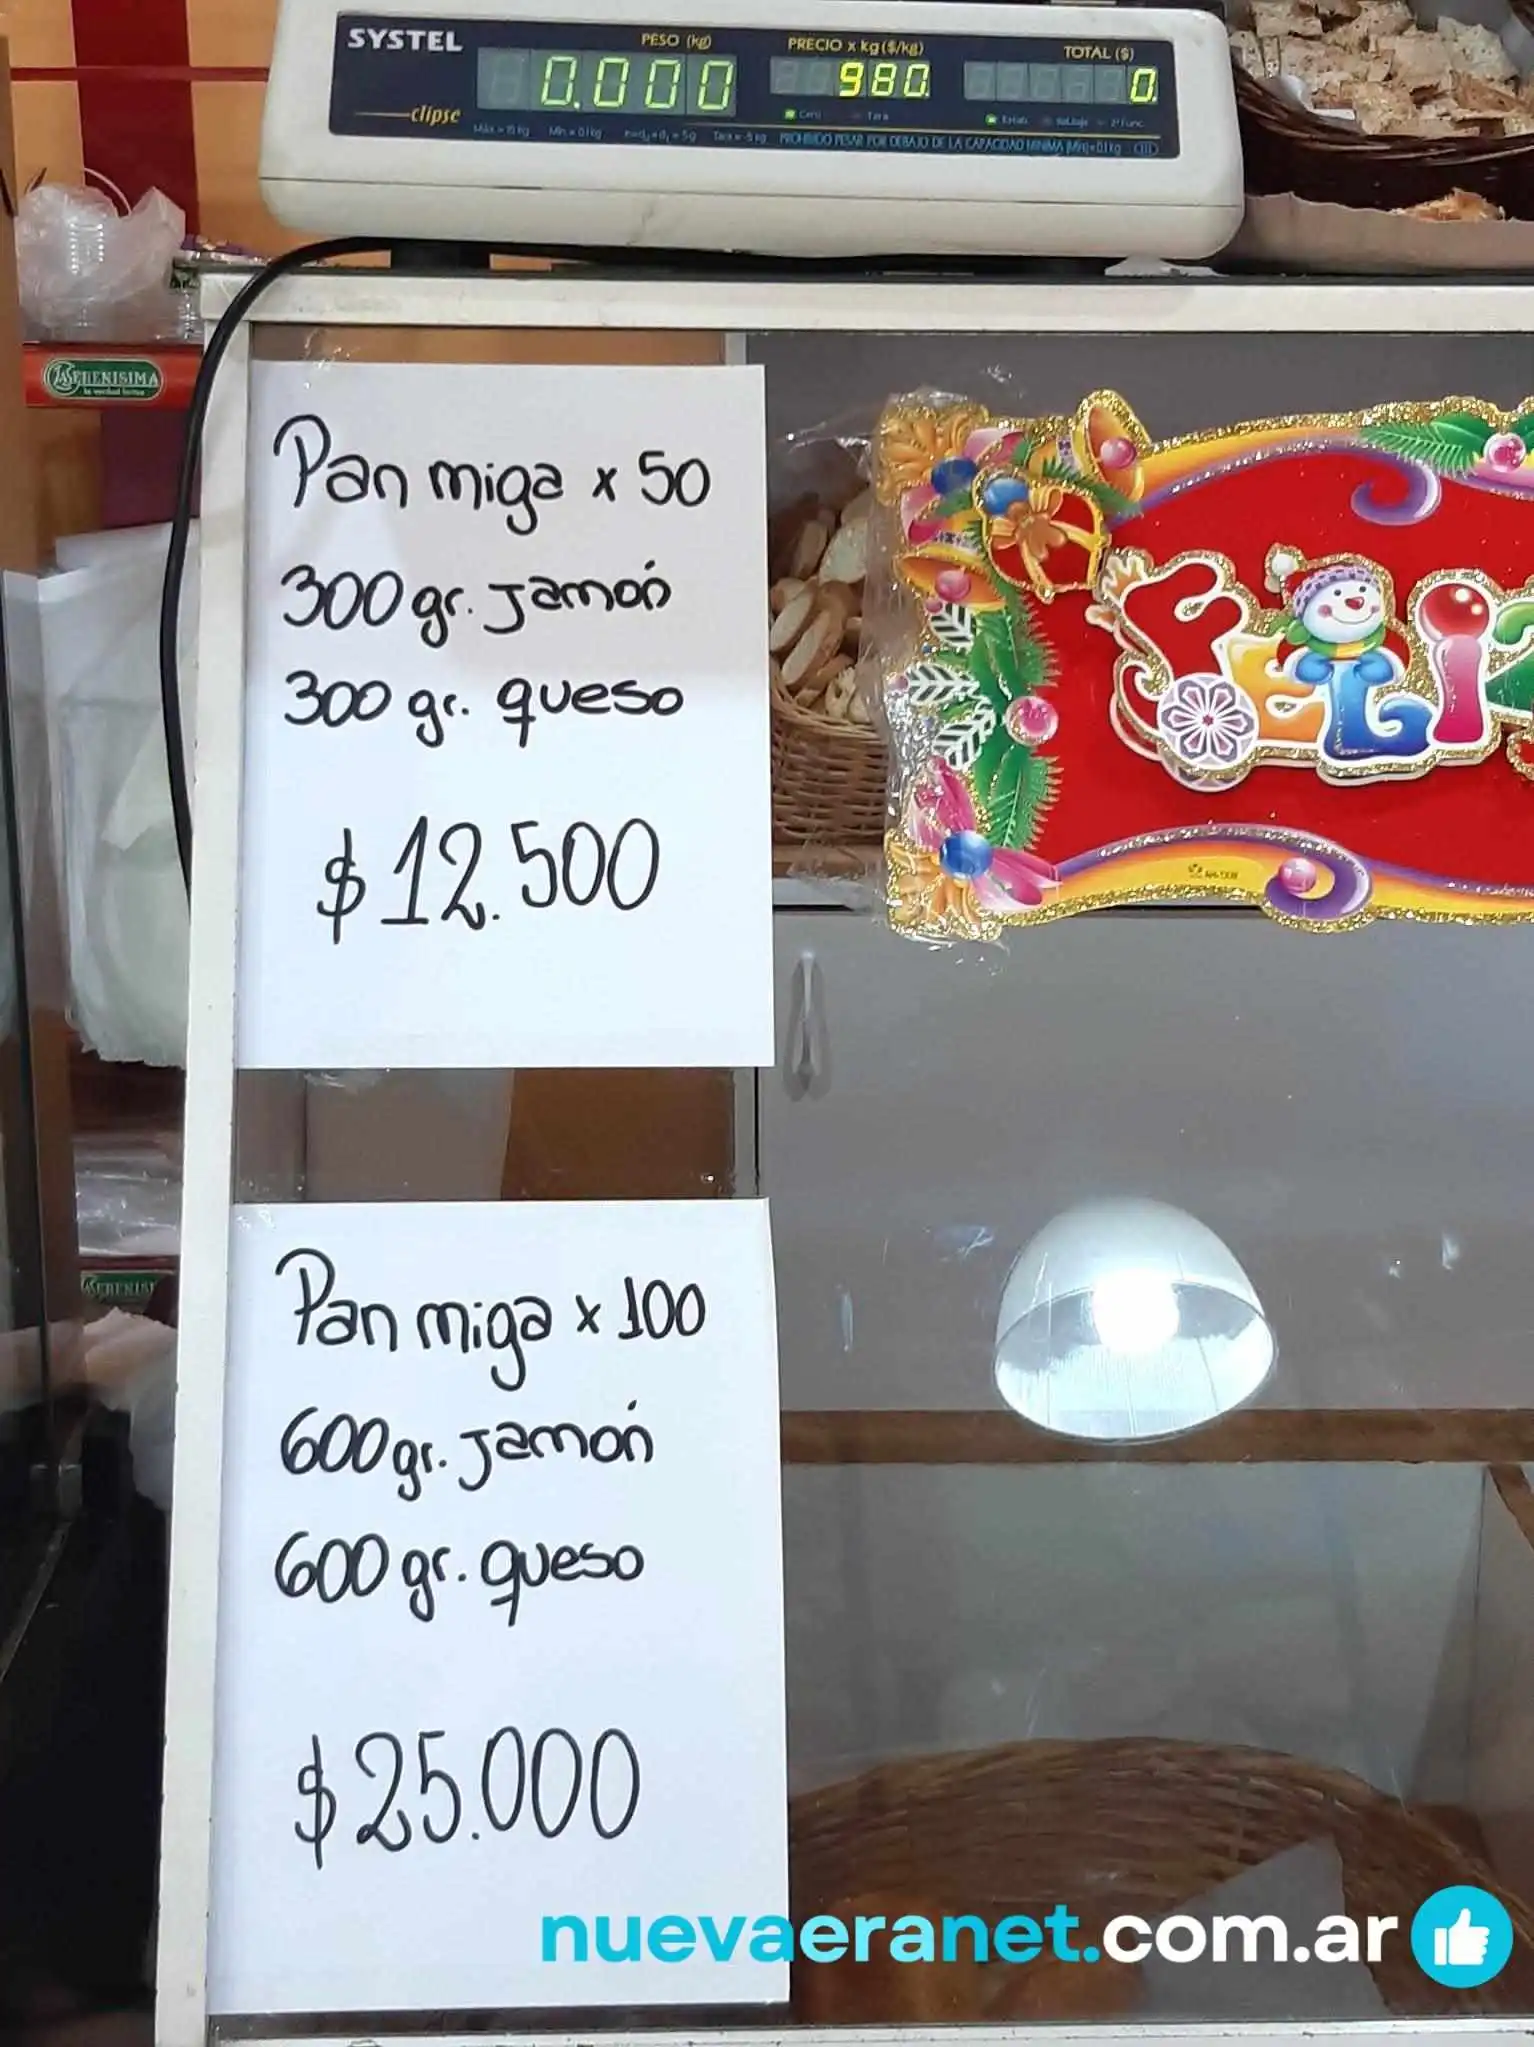 SYSTEL
PESO (kg)
PRECIO x kg ($/kg)
TOTAL ($)
0.000
980.
0.
clipse
PROHIBIDO PESAR POR DEBAJO DE LA CAPACIDAD MINIMA
LA SERENISIMA
Pan miga x 50
300 gr. Jamón
300 gr. queso
$ 12.500
FELIZ
Pan miga x 100
600 gr. Jamón
600 gr. queso
$ 25.000
nuevaeranet.com.ar